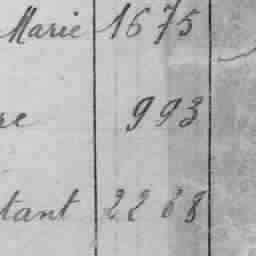 Marie 1675
re 993
tant 2268